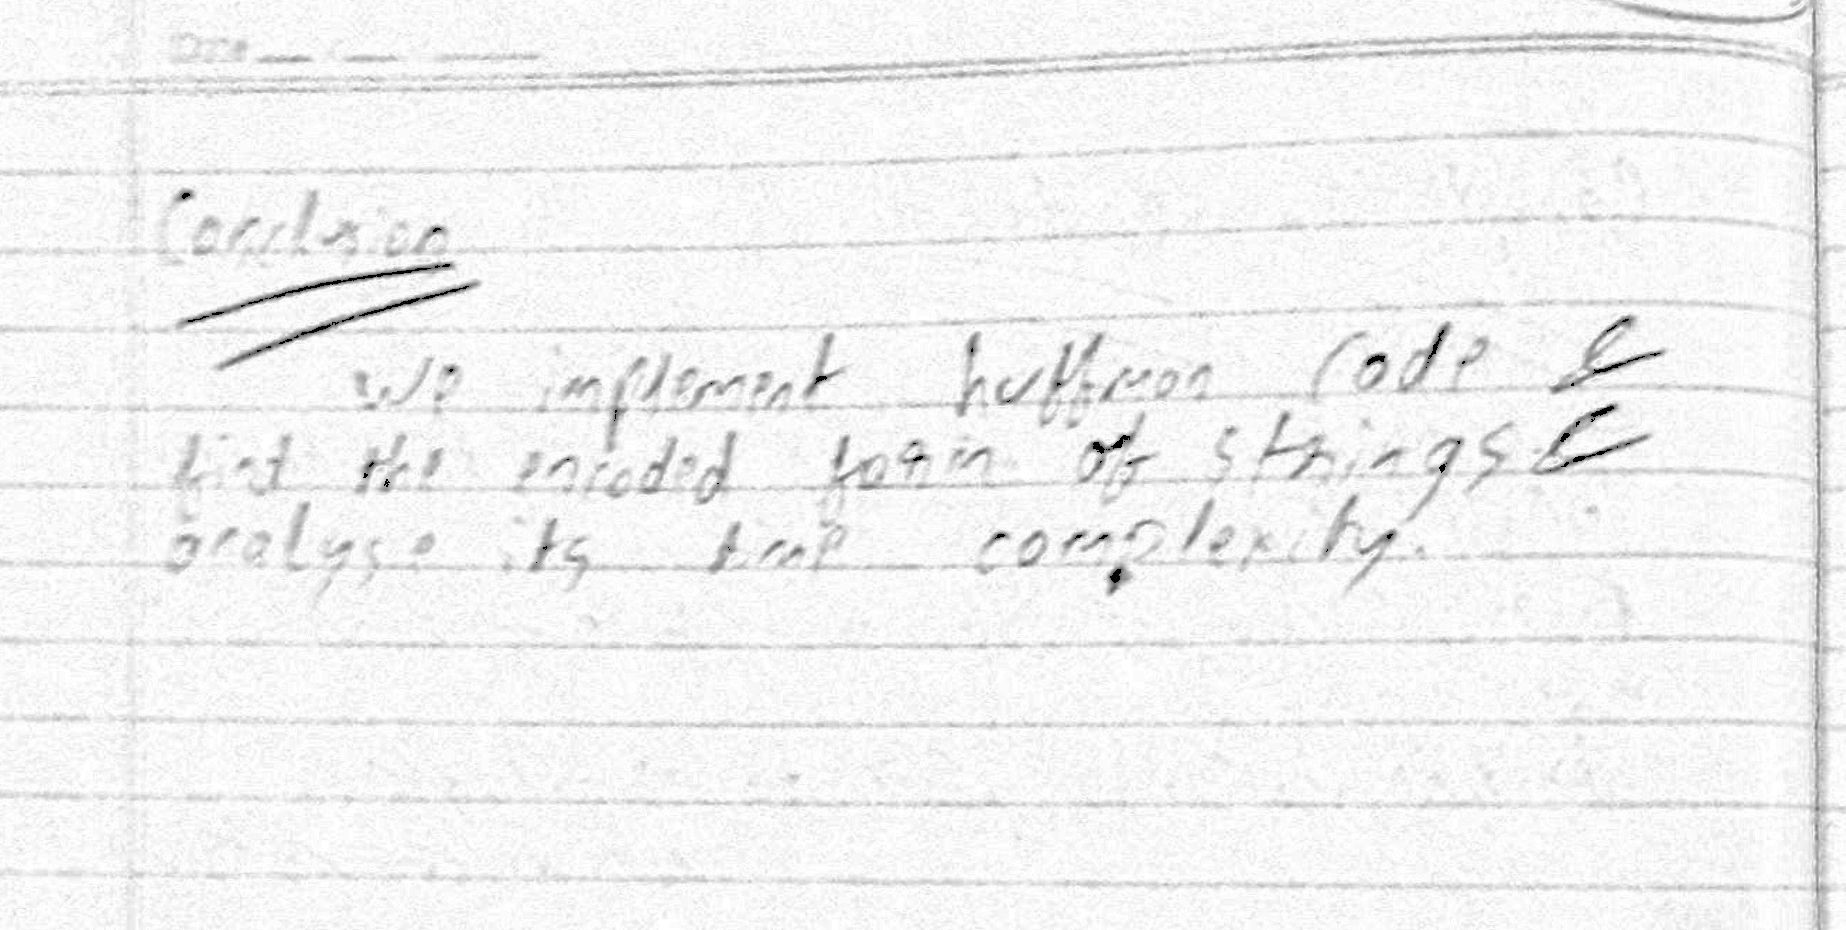 Date
Conclusion
We implement huffman code &
find the encoded form of strings &
analyse its time complexity.